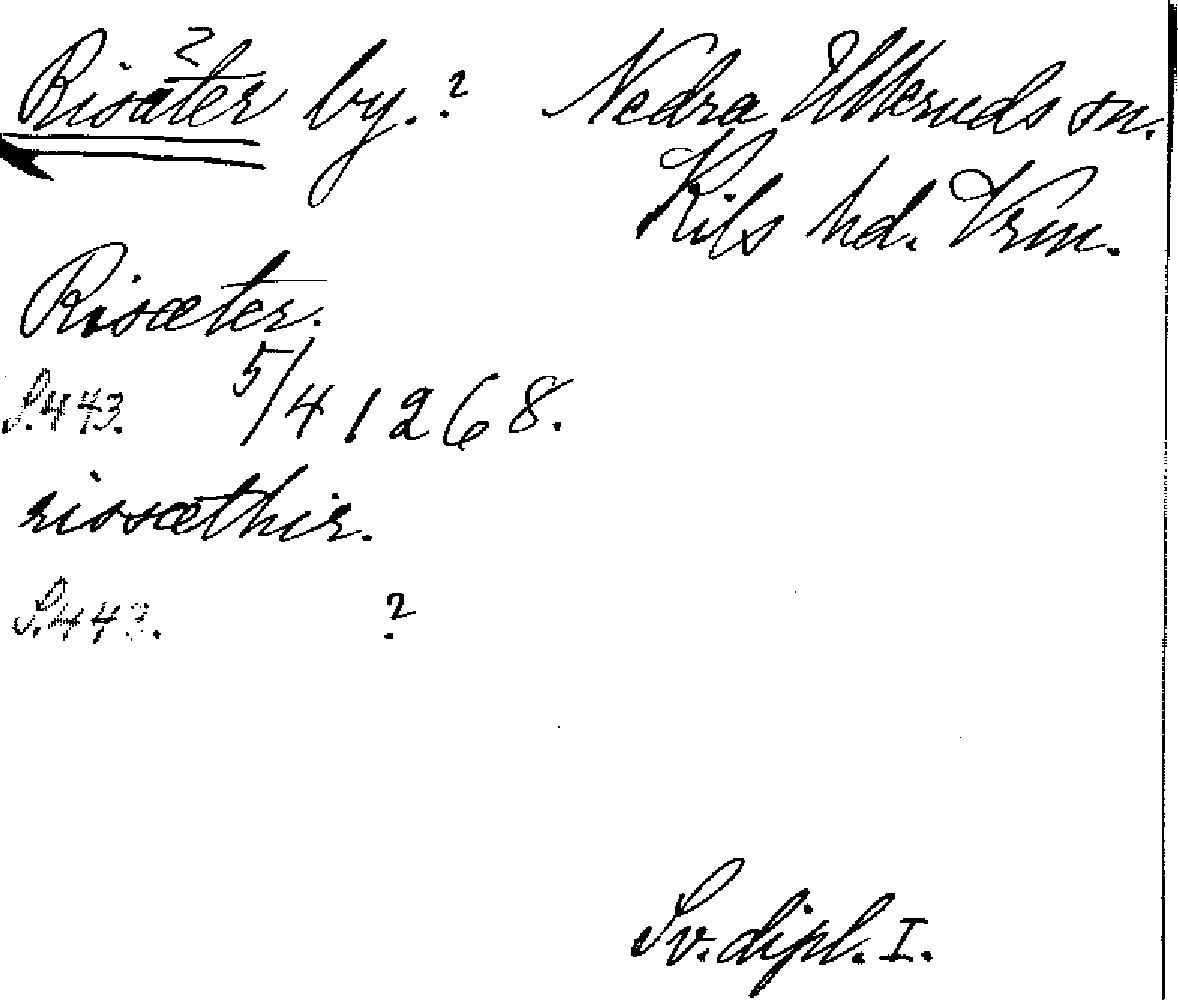 Risäter by.? Nedra Ulleruds sn.
Kils hd. Vrm.
Risæter.
S.443. 5/4 1268.
rissæthir.
S.443. ?
Sv. dipl. I.